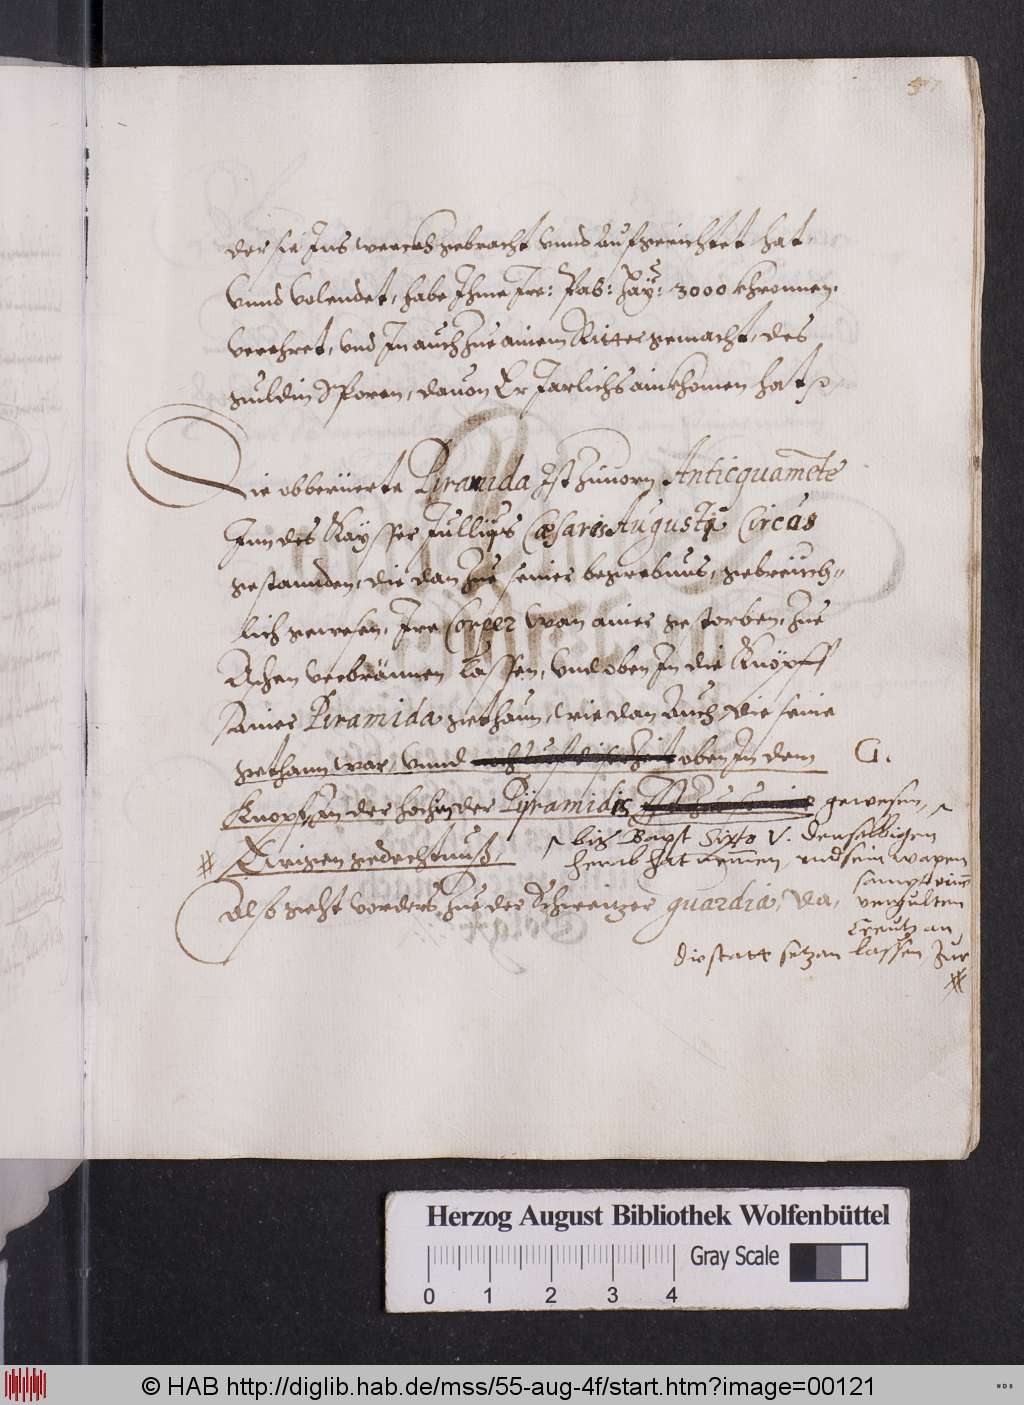 der sie Ins werckh gebracht vnnd Aufgerichtet hat,
vnnd volendet, habe Ihme Ire: Pab: Hay: 3000 Chronnen,
verehret, vnd In auch zue ainem Ritter gemacht, des
guldin Sporen, davon Er Jarlichs ainkhomen hat
Die obberüerte Piramida Ist zuuorn Anticquamēte
Inn des Kaysser Jullius Cæsaris Augusti Circus
gestannden, die dan zue seiner begrebnus, gebreuch=
lich gewesen, Ire Cörper wan ainer gestorben, zue
Aschen verbrännen lassen, vnd oben In die Knöpff
ainer Piramida gethaun, wie dan Auch die seine
gethann war, vnnd oben In dem G.
Knopf, an der hoch der Pÿramidis gewesen,
biß Bapst Sixto V. denselbigen
herab hat nemmen, vnd sein wapen
sampt eim
vergulten
Creutz an
die statt setzen lassen, Zur
# Ewigen gedechtnuß,
Also geht vorders zue der Schweitzer guardia, da,
Herzog August Bibliothek Wolfenbüttel
Gray Scale
0 1 2 3 4
© HAB http://diglib.hab.de/mss/55-aug-4f/start.htm?image=00121